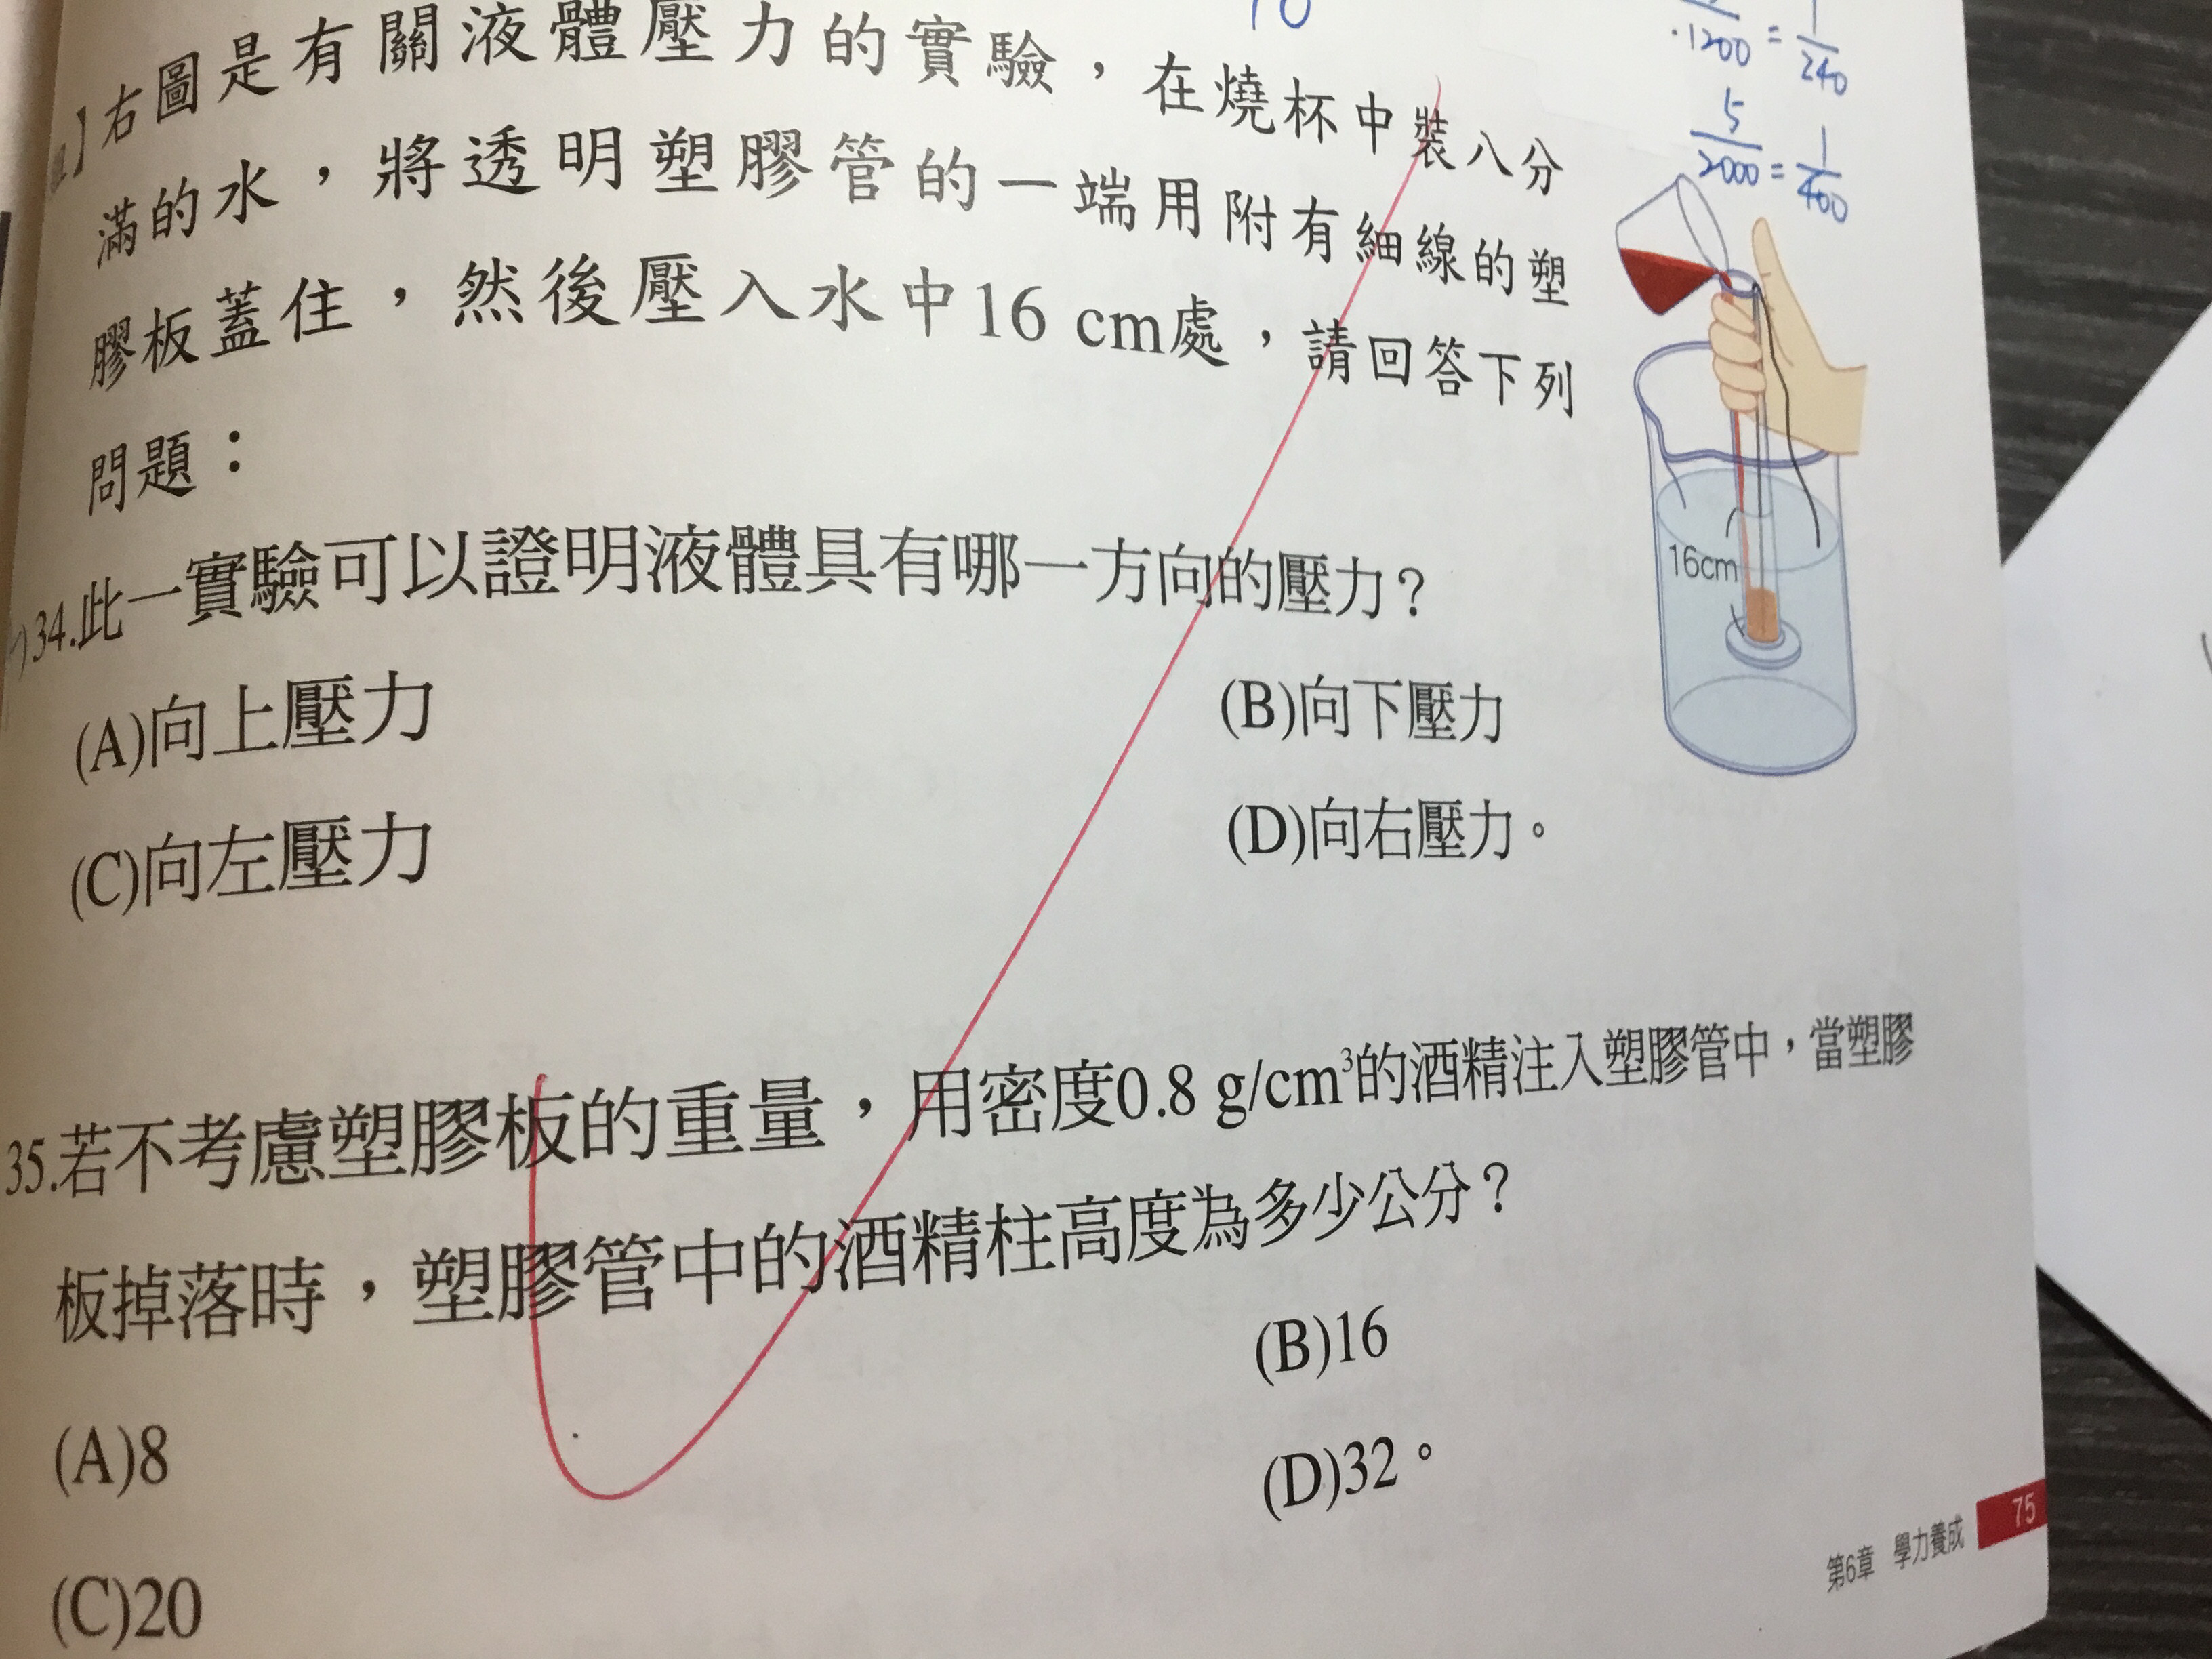 10
1200 = 1/240
5/2000 = 1/400
】右圖是有關液體壓力的實驗，在燒杯中裝八分
滿的水，將透明塑膠管的一端用附有細線的塑
膠板蓋住，然後壓入水中16 cm處，請回答下列
問題：
16cm
)34.此一實驗可以證明液體具有哪一方向的壓力？
(A)向上壓力 (B)向下壓力
(C)向左壓力 (D)向右壓力。
35.若不考慮塑膠板的重量，用密度0.8 g/cm³的酒精注入塑膠管中，當塑膠
板掉落時，塑膠管中的酒精柱高度為多少公分？
(A)8 (B)16
(C)20 (D)32。
第6章 學力養成 75